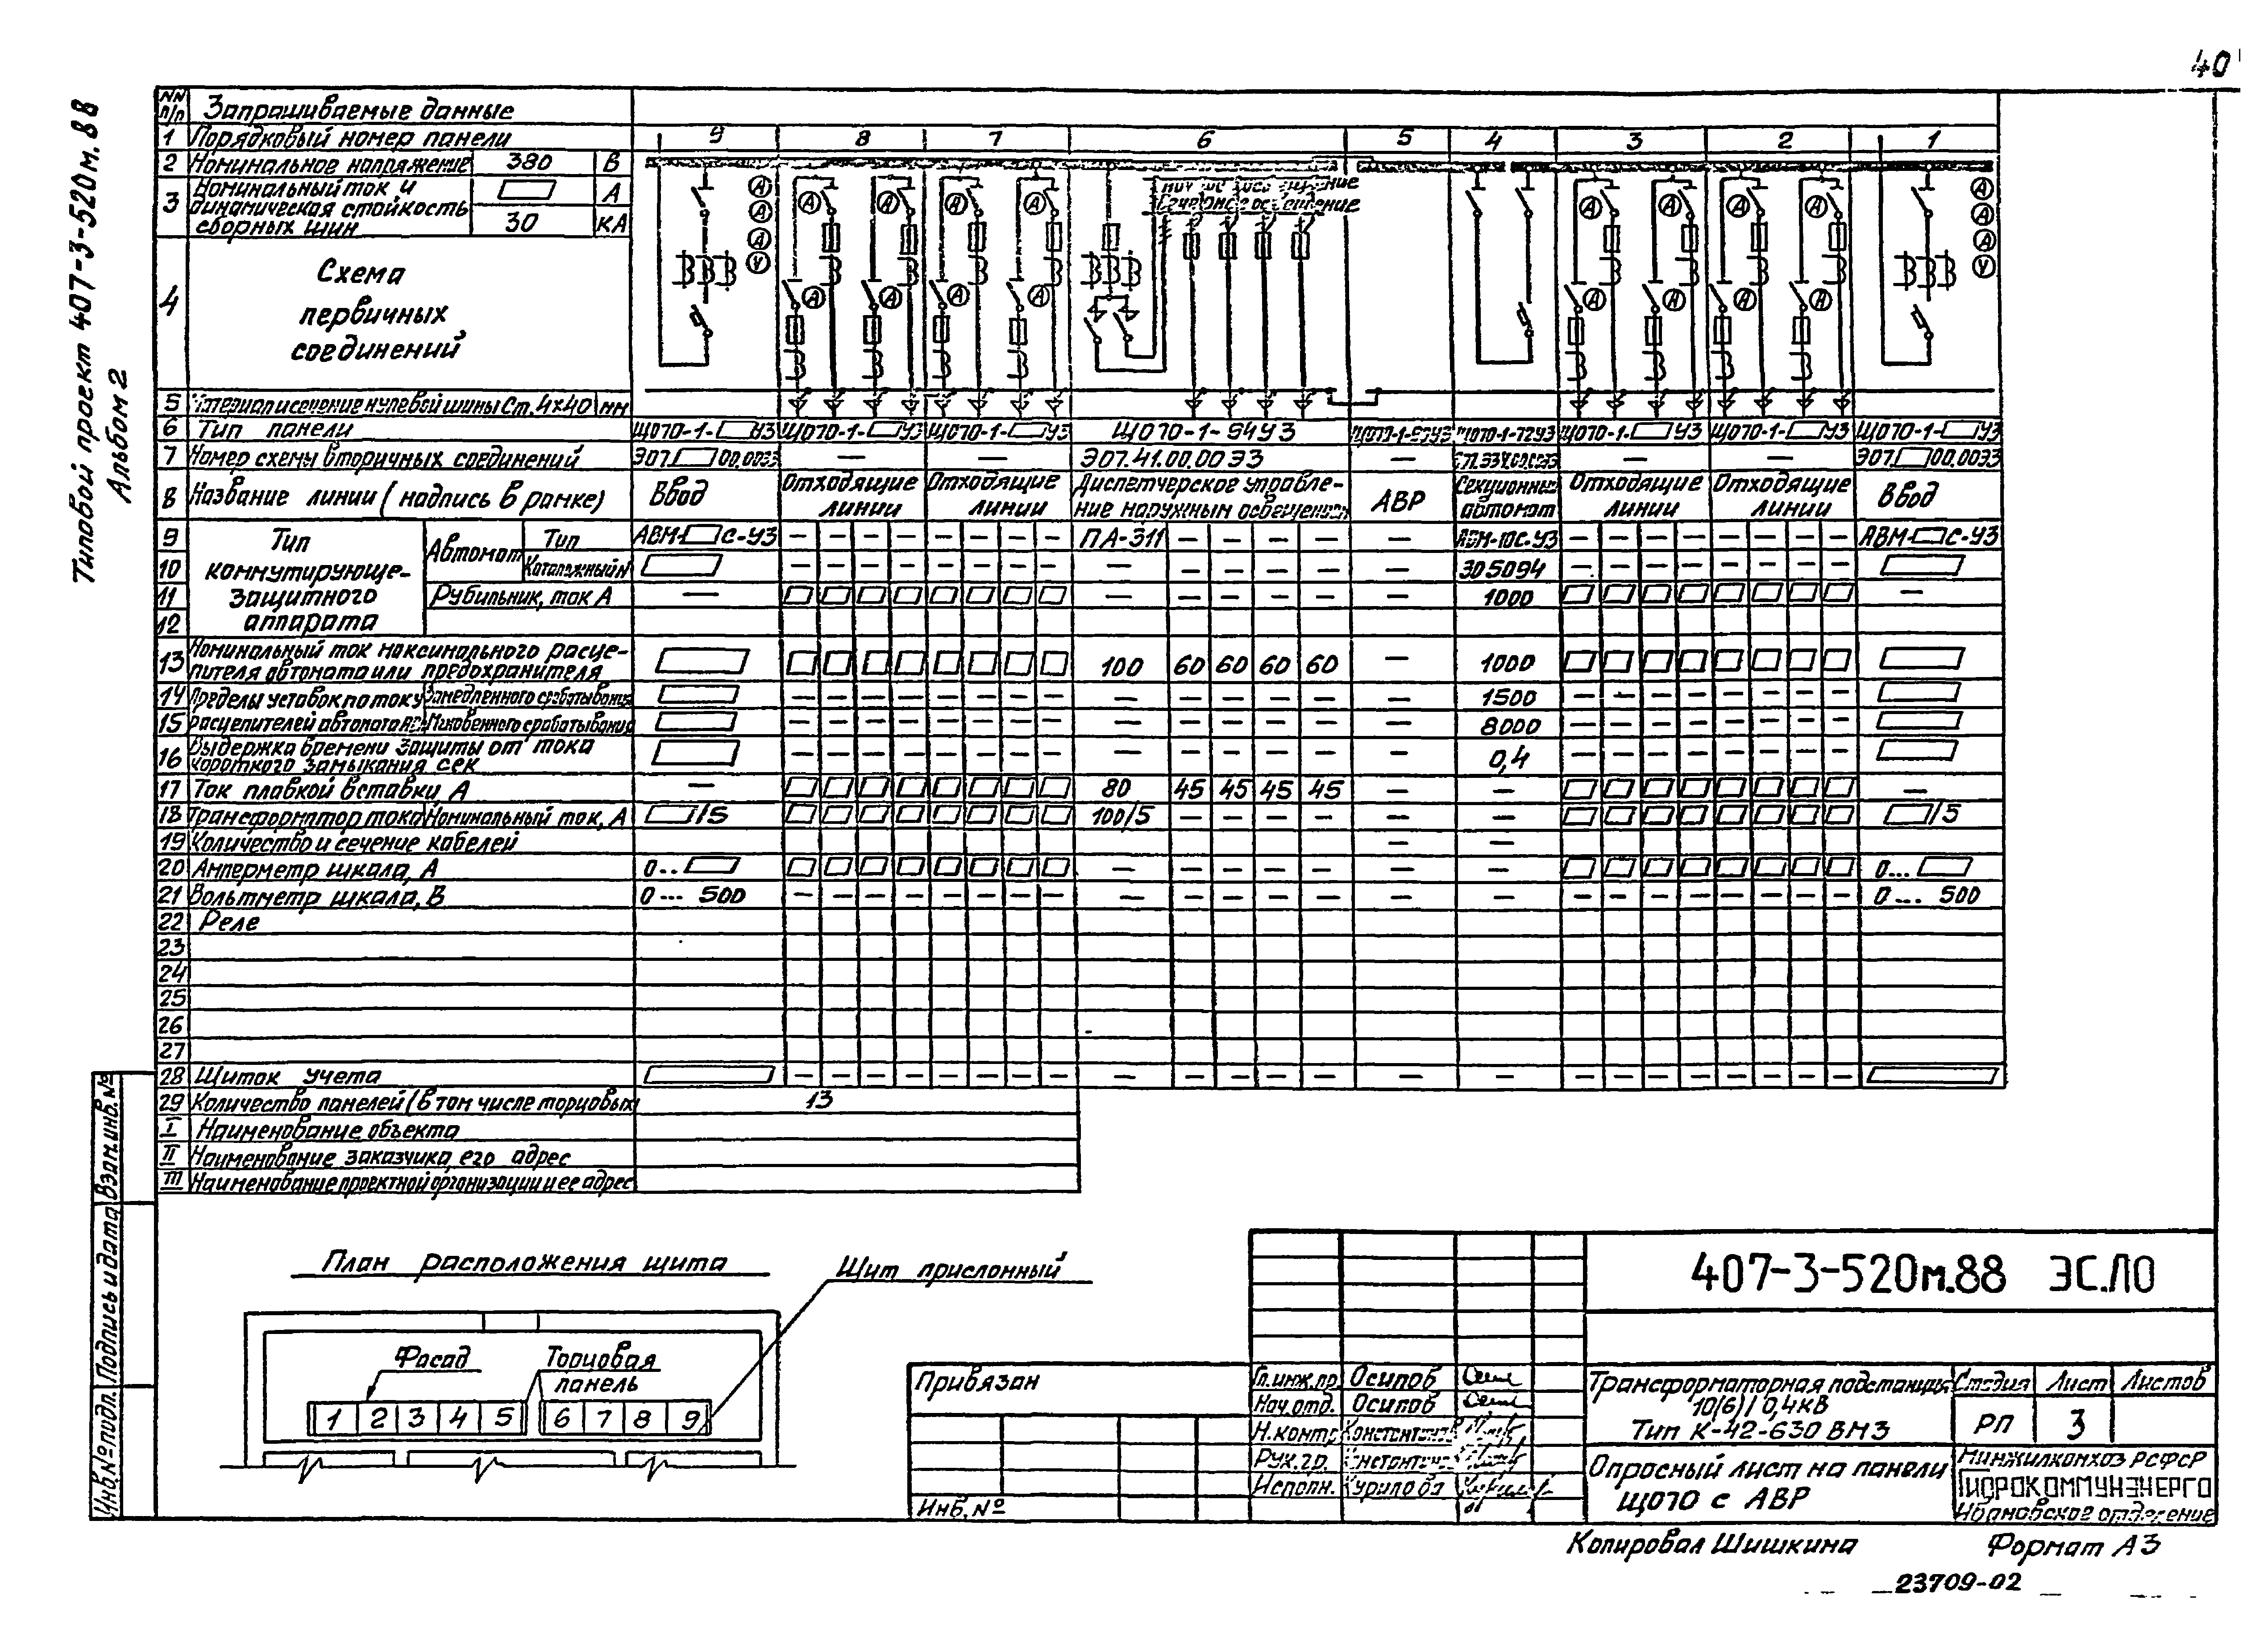 40
Типовой проект 407-3-520м.88
Альбом 2
NN п/п Запрашиваемые данные
1 Порядковый номер панели 9 8 7 6 5 4 3 2 1
2 Номинальное напряжение 380 В
3 Номинальный ток и динамическая стойкость сборных шин А
30 КА
4 Схема первичных соединений
А А А V А А А А А А А А А А А А А А А А А А А V
5 сечение нулевой шины Ст. 4×40 мм
6 Тип панели ЩО70-1- У3 ЩО70-1- У3 ЩО70-1- У3 ЩО70-1-94У3 ЩО70-1-72У3 ЩО70-1- У3 ЩО70-1- У3 ЩО70-1- У3
7 Номер схемы вторичных соединений Э07. 00.00ЭЗ — — Э07.41.00.00ЭЗ — — — Э07 00.00ЭЗ
8 Название линии (надпись в рамке) Ввод Отходящие линии Отходящие линии Диспетчерское управление наружным освещением АВР Секционный автомат Отходящие линии Отходящие линии Ввод
9 Тип коммутирующе-защитного аппарата Автомат Тип АВМ- С-У3 — — — — — — — — ПА-311 — — — — — АВМ-10С-У3 — — — — — — — — АВМ- С-У3
10 Каталожный N — — — — — — — — — — — — — — 305094 — — — — — — — —
11 Рубильник, ток А — — — — — — — 1000 —
12
13 Номинальный ток максимального расцепителя автомата или предохранителя 100 60 60 60 60 — 1000
14 Пределы уставок по току замедленного срабатывания — — — — — — — — — — — — — — 1500 — — — — — — — —
15 расцепителей автомата Мгновенного срабатывания — — — — — — — — — — — — — — 8000 — — — — — — — —
16 Выдержка времени защиты от тока короткого замыкания сек — — — — — — — — — — — — — — 0,4 — — — — — — — —
17 Ток плавкой вставки А — 80 45 45 45 45 — — —
18 Трансформатор тока Номинальный ток, А /5 100/5 — — — — — — /5
19 Количество и сечение кабелей — —
20 Амперметр шкала, А 0... — — — — — — — 0...
21 Вольтметр шкала, В 0... 500 — — — — — — — — — — — — — — — — — — — — — — — 0... 500
22 Реле
23
24
25
26
27
28 Щиток учета — — — — — — — — — — — — — — — — — — — — — — —
29 Количество панелей (в том числе торцовых) 13
I Наименование объекта
II Наименование заказчика, его адрес
III Наименование проектной организации и ее адрес
План расположения щита
Щит прислонный
Фасад
Торцовая панель
1 2 3 4 5 6 7 8 9
Инв.№ подп. Подпись и дата Взам.инв.№
Привязан
Инв.№
407-3-520м.88 ЭС.ЛО
Гл.инж.пр. Осипов
Нач.отд. Осипов
Н.контр.
Рук.гр.
Исполн. Курилова
Трансформаторная подстанция
10(6)/0,4кВ
Тип К-42-630 ВМ3
Стадия Лист Листов
РП 3
Опросный лист на панели
ЩО70 с АВР
Минжилкомхоз РСФСР
ГИПРОКОММУНЭНЕРГО
Ивановское отделение
Копировал Шишкина Формат А3
23709-02